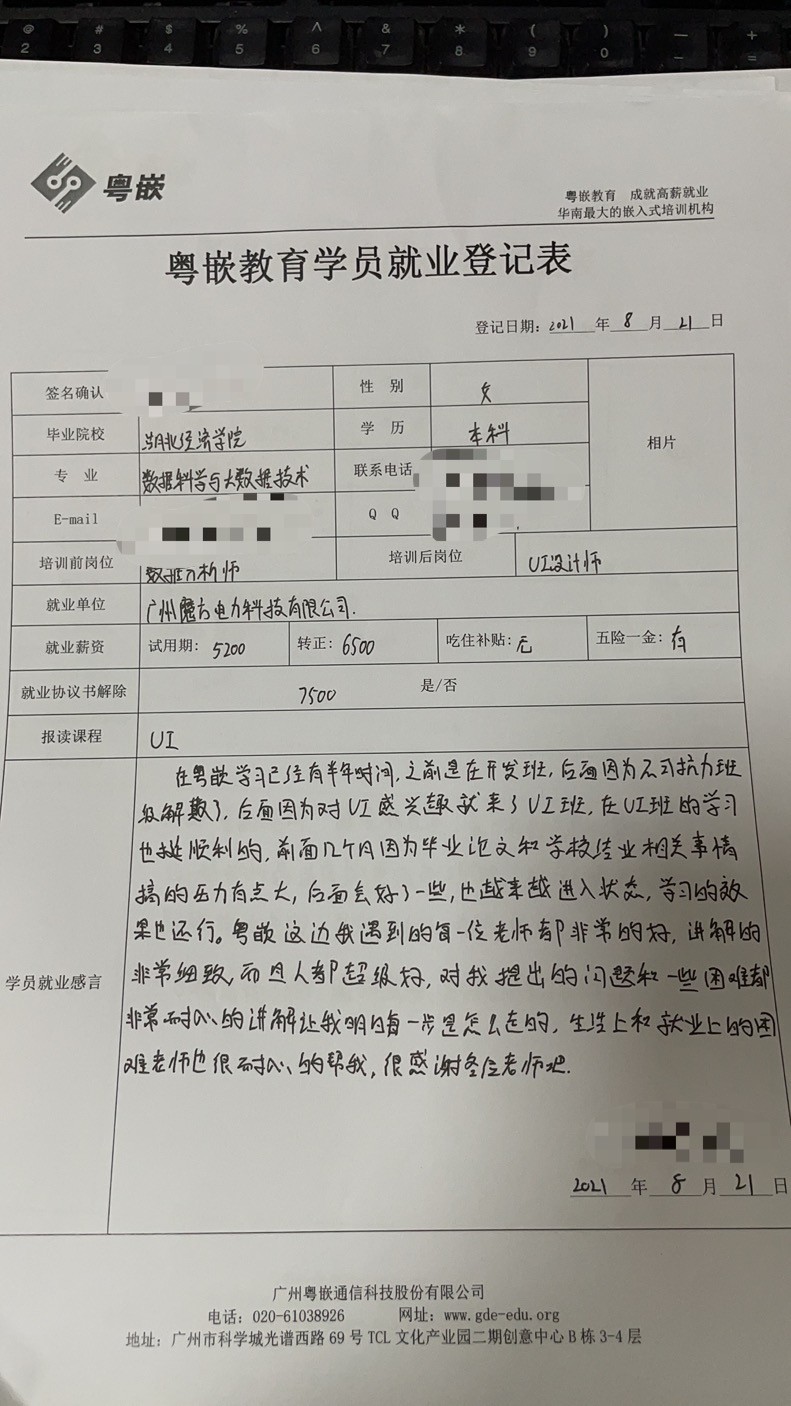 @ # $ % ^ & * ( ) — +
2 3 4 5 6 7 8 9 0 - =
粤嵌
粤嵌教育 成就高薪就业
华南最大的嵌入式培训机构
粤嵌教育学员就业登记表
登记日期：2021年8月21日
签名确认 性 别 女
毕业院校 湖北经济学院 学 历 本科 相片
专 业 数据科学与大数据技术 联系电话
E-mail Q Q
培训前岗位 数据分析师 培训后岗位 UI设计师
就业单位 广州魔方电力科技有限公司.
就业薪资 试用期：5200 转正：6500 吃住补贴：无 五险一金：有
就业协议书解除 7500 是/否
报读课程 UI
学员就业感言
在粤嵌学习已经有半年时间，之前是在开发班，后面因为不可抗力班
级解散了，后面因为对UI感兴趣就来了UI班，在UI班的学习
也挺顺利的，前面几个月因为毕业论文和学校结业相关事情
搞的压力有点大，后面会好了一些，也越来越进入状态，学习的效
果也还行。粤嵌这边我遇到的每一位老师都非常的好，讲解的
非常细致，而且人都超级好，对我提出的问题和一些困难都
非常耐心的讲解让我明白每一步是怎么走的，生活上和就业上的困
难老师也很耐心的帮我，很感谢各位老师吧.
2021年8月21日
广州粤嵌通信科技股份有限公司
电话：020-61038926 网址：www.gde-edu.org
地址：广州市科学城光谱西路69号TCL文化产业园二期创意中心B栋3-4层